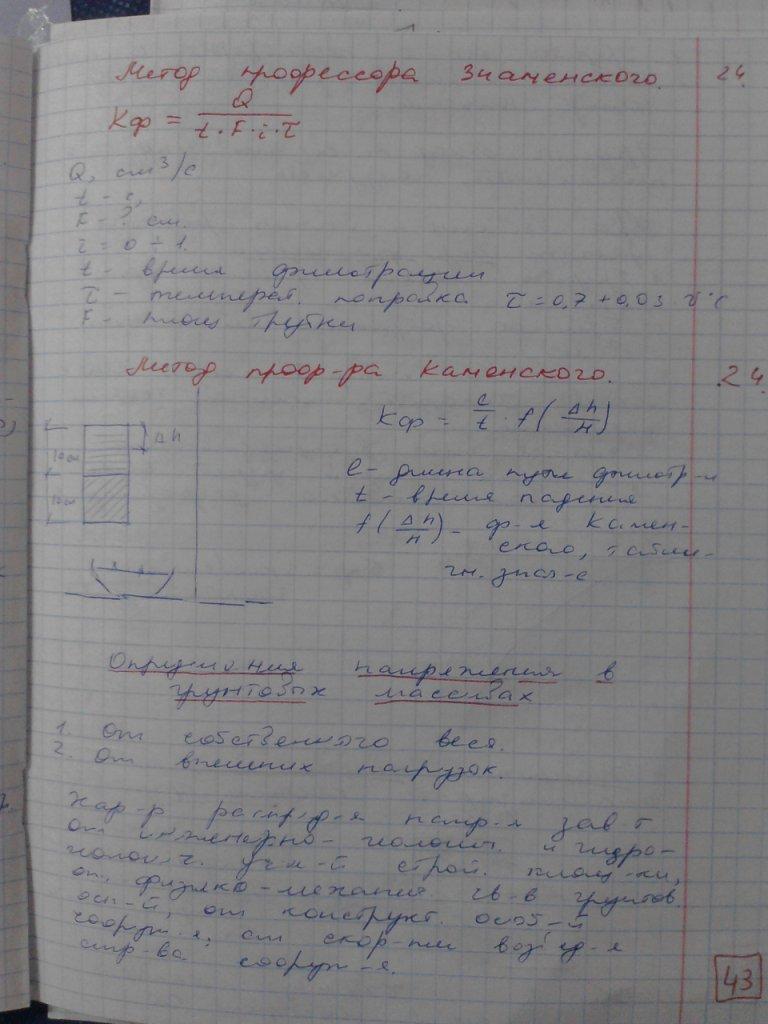 Метод профессора Знаменского. 24.
Кф = Q / t · F · i · τ
Q, см³/с
t - с,
F - ? см.
τ = 0 ÷ 1.
t - время фильтрации
τ - температ. поправка τ = 0,7 + 0,03 τ°C
F - площ трубки
Метод проф-ра Каменского. 24.
Кф = ℓ/t · f(Δh/H)
Δh
10см
10см
ℓ - длина пути фильтр-и
t - время падения
f(Δh/H) - ф-я Камен-
ского, табли-
чн. знач-е
Определения напряжения в
грунтовых массивах
1. От собственного веса.
2. От внешних нагрузок.
Хар-р распред-я напр-я зав т
от инженерно-геологич. и гидро-
геологич. усл-й строй. площ-ки,
от физико-механич св-в грунтов.
осн-й, от конструкт. особ-й
сооруж-я, от скор-ти возвед-я
стр-ва сооруж-я.
43